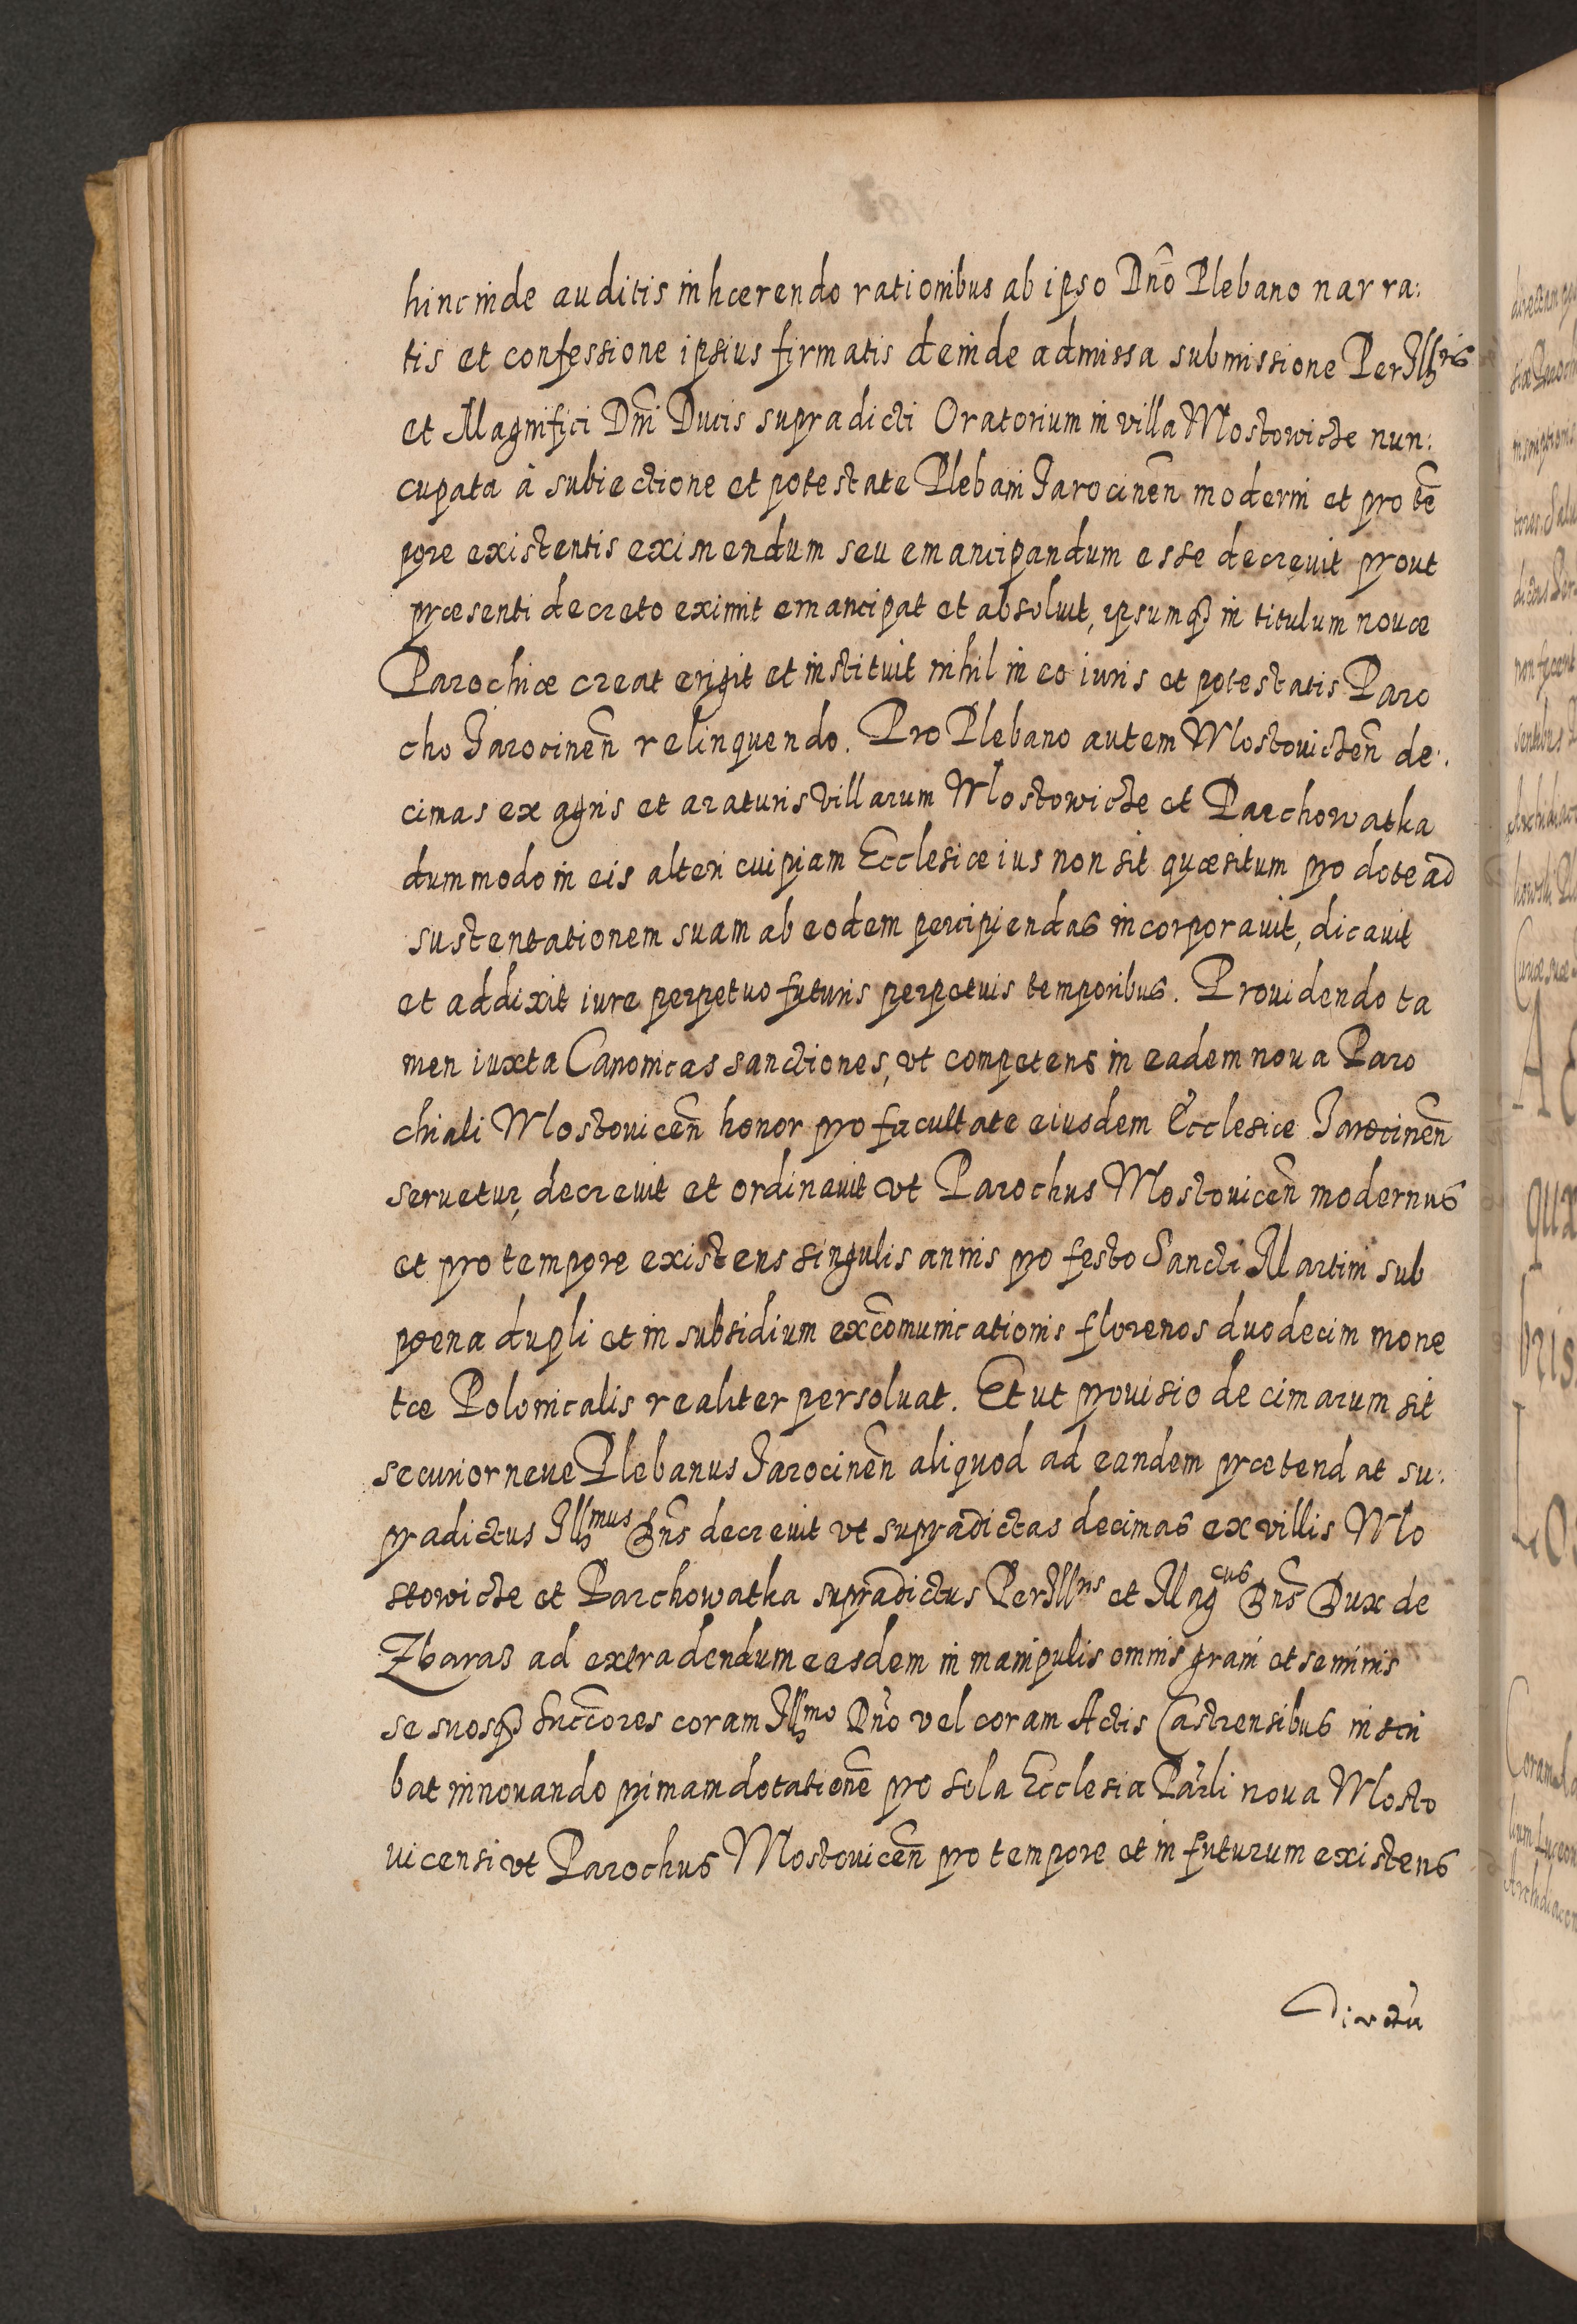 hinc inde auditis inhærendo rationibus ab ipso Dno Plebano narra:
tis et confessione ipsius firmatis deinde admissa submissione PerIllris
et Magnifici Dni Ducis supradicti Oratorium in villa Wlostowicze nun:
cupata à subiectione et potestate Plebani Jarocinen̄ moderni et pro tē
pore existentis eximendum seu emancipandum esse decrevit prout
præsenti decreto eximit emancipat et absoluit, ipsumq̢ in titulum nouæ
Parochiæ creat erigit et instituit nihil in eo iuris et potestatis Paro
cho Jarocinen̄ relinquendo. Pro Plebano autem Wlostoviczen̄ de:
cimas ex agris et araturis Villarum Wlostowicze et Parchowatka
dummodo in eis alteri cuipiam Ecclesiæ ius non sit quæsitum pro dote ad
sustentationem suam ab eodem percipiendas incorporauit, dicauit
et addixit iure perpetuo futuris perpetuis temporibus. Prouidendo ta
men iuxta Canonicas sanctiones, vt competens in eadem noua Paro
chiali Wlostouicen̄ honor pro facultate eiusdem Ecclesiæ Jarocinen̄
seruetur, decreuit et ordinauit vt Parochus Wlostouicen̄ modernus
et pro tempore existens singulis annis pro festo Sancti Martini sub
poena dupli et in subsidium excōmunicationis florenos duodecim mone
tæ Polonicalis realiter persoluat. Et ut prouisio decimarum sit
securior neue Plebanus Jarocinen̄ aliquod ad eandem prætendat su:
pradictus Illmus Dn̄s decreuit vt supradictas decimas ex villis Wlo
stowicze et Parchowatka supradictus PerIllris et Magcus Dn̄s Dux de
Zbaraß ad extradendum easdem in manipulis omnis grani et seminis
se suosq̢ Succ̄ores coram Illmo Dn̄o vel coram Actis Castrensibus inscri
bat innouando primam dotationē pro sola Ecclesia Par̄li noua Wlosto
uicensi vt Parochus Wlostouicen̄ pro tempore et in futurum existens